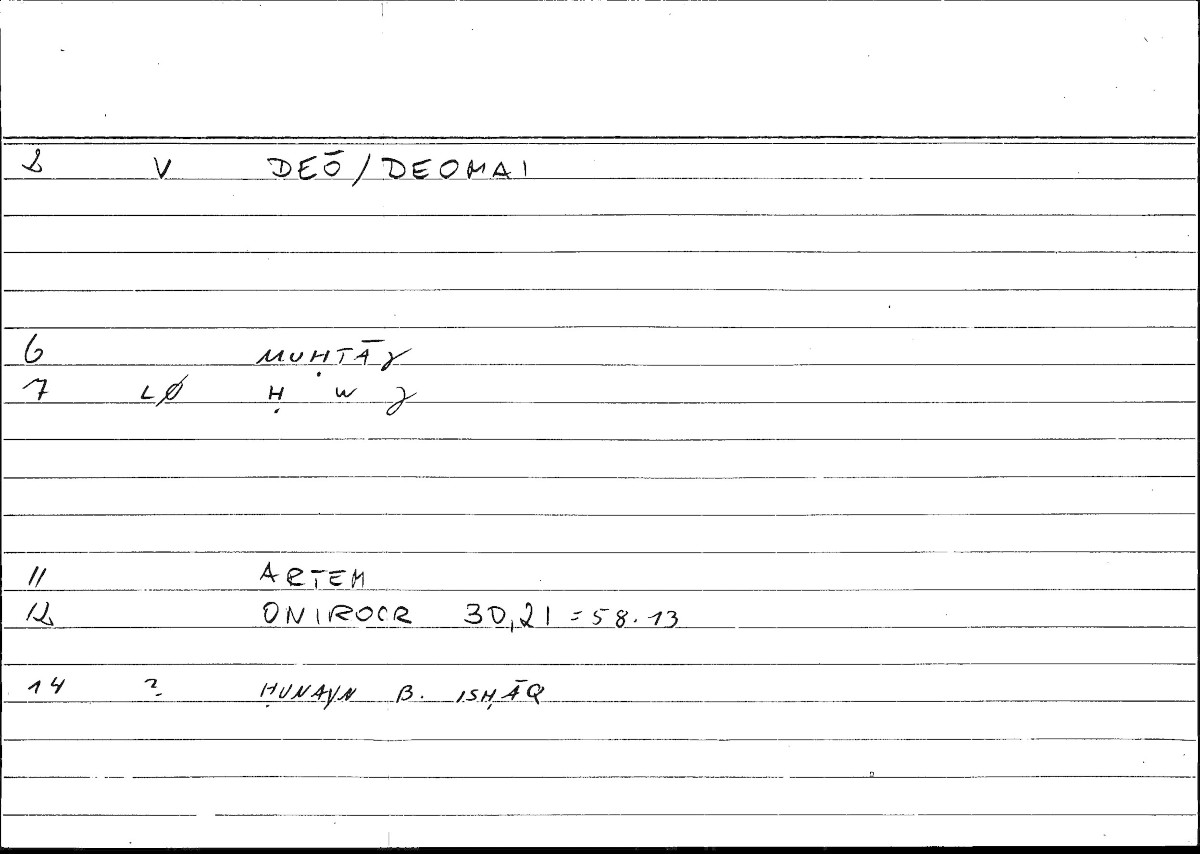 2 V DEŌ/DEOMAI
6 MUḤTĀJ
7 LØ Ḥ W J
11 ARTEM
12 ONIROCR 30,21 = 58.13
14 ? ḤUNAYN B. ISḤĀQ